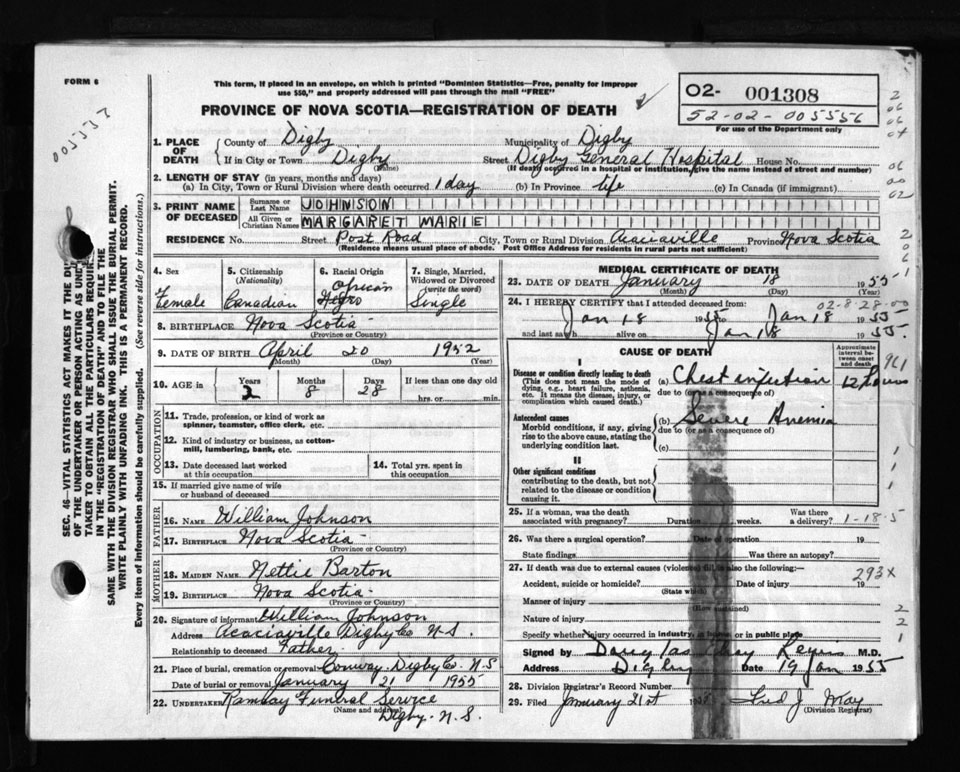 FORM 6
This form, if placed in an envelope, on which is printed "Dominion Statistics—Free, penalty for improper
use $50," and properly addressed will pass through the mail "FREE"
PROVINCE OF NOVA SCOTIA—REGISTRATION OF DEATH
02- 001308
52-02-005556
For use of the Department only
005557
1. PLACE OF DEATH
County of Digby Municipality of Digby
If in City or Town Digby Street Digby General Hospital House No.
(Name) (If death occurred in a hospital or institution, give the name instead of street and number)
2. LENGTH OF STAY (in years, months and days)
(a) In City, Town or Rural Division where death occurred 1 day (b) In Province life (c) In Canada (if immigrant)
3. PRINT NAME OF DECEASED
Surname or Last Name JOHNSON
All Given or Christian Names MARGARET MARIE
RESIDENCE No. Street Post Road City, Town or Rural Division Acaciaville Province Nova Scotia
(Residence means usual place of abode. Post Office Address for residents in rural parts not sufficient)
4. Sex
Female
5. Citizenship
(Nationality)
Canadian
6. Racial Origin
African
Negro
7. Single, Married,
Widowed or Divorced
(write the word)
Single
8. BIRTHPLACE Nova Scotia
(Province or Country)
9. DATE OF BIRTH April 20 1952
(Month) (Day) (Year)
10. AGE in
Years Months Days If less than one day old
2 8 28 hrs. or min.
OCCUPATION
11. Trade, profession, or kind of work as
spinner, teamster, office clerk, etc.
12. Kind of industry or business, as cotton-
mill, lumbering, bank, etc.
13. Date deceased last worked
at this occupation
14. Total yrs. spent in
this occupation
15. If married give name of wife
or husband of deceased
FATHER
16. NAME William Johnson
17. BIRTHPLACE Nova Scotia
(Province or Country)
MOTHER
18. MAIDEN NAME Nettie Barton
19. BIRTHPLACE Nova Scotia
(Province or Country)
20. Signature of informant William Johnson
Address Acaciaville Digby Co N.S.
Relationship to deceased Father
21. Place of burial, cremation or removal Conway Digby Co. N.S
Date of burial or removal January 21 1955
22. UNDERTAKER Ramsay Funeral Service
(Name and address) Digby. N.S.
MEDICAL CERTIFICATE OF DEATH
23. DATE OF DEATH January 18 1955
(Month) (Day) (Year)
24. I HEREBY CERTIFY that I attended deceased from
02-8-28-00
Jan 18 1955 to Jan 18 1955
and last saw h alive on Jan 18 1955.
CAUSE OF DEATH
Approximate
interval between
onset
and death
I
Disease or condition directly leading to death
(This does not mean the mode of
dying, e.g., heart failure, asthenia,
etc. It means the disease, injury, or
complication which caused death.)
(a) Chest infection 12 hours
due to (or as a consequence of)
Antecedent causes
Morbid conditions, if any, giving
rise to the above cause, stating the
underlying condition last.
(b) Severe Anemia
due to (or as a consequence of)
(c)
II
Other significant conditions
contributing to the death, but not
related to the disease or condition
causing it.
25. If a woman, was the death
associated with pregnancy? Duration weeks. Was there
a delivery?
1-18-5
26. Was there a surgical operation? Date of operation 19
State findings Was there an autopsy?
27. If death was due to external causes (violence) fill in also the following:
293X
Accident, suicide or homicide? Date of injury 19
(State which)
Manner of injury
(How sustained)
Nature of injury
Specify whether injury occurred in industry, in home, or in public place
Signed by Douglas Lewis M.D.
Address Digby Date 19 Jan 1955
28. Division Registrar's Record Number
29. Filed January 21st 19 Fred J May
(Division Registrar)
SEC. 46—VITAL STATISTICS ACT MAKES IT THE DUTY
OF THE UNDERTAKER OR PERSON ACTING AS UNDER-
TAKER TO OBTAIN ALL THE PARTICULARS REQUIRED
IN THE "REGISTRATION OF DEATH" AND TO FILE THE
SAME WITH THE DIVISION REGISTRAR WHO SHALL ISSUE THE BURIAL PERMIT.
WRITE PLAINLY WITH UNFADING INK. THIS IS A PERMANENT RECORD.
Every item of information should be carefully supplied. (See reverse side for instructions.)